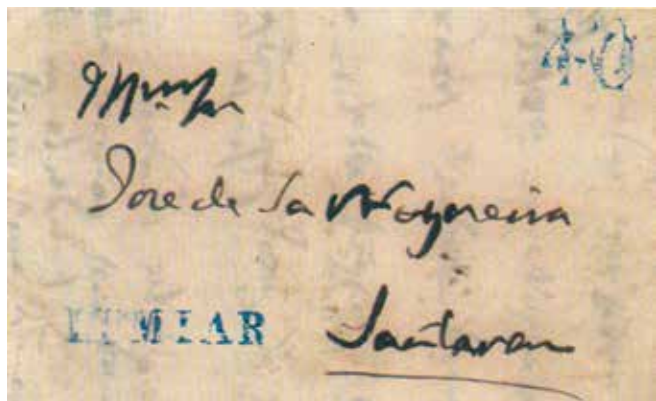 40
Jose de Sa Nogueira
LUMIAR Santarem